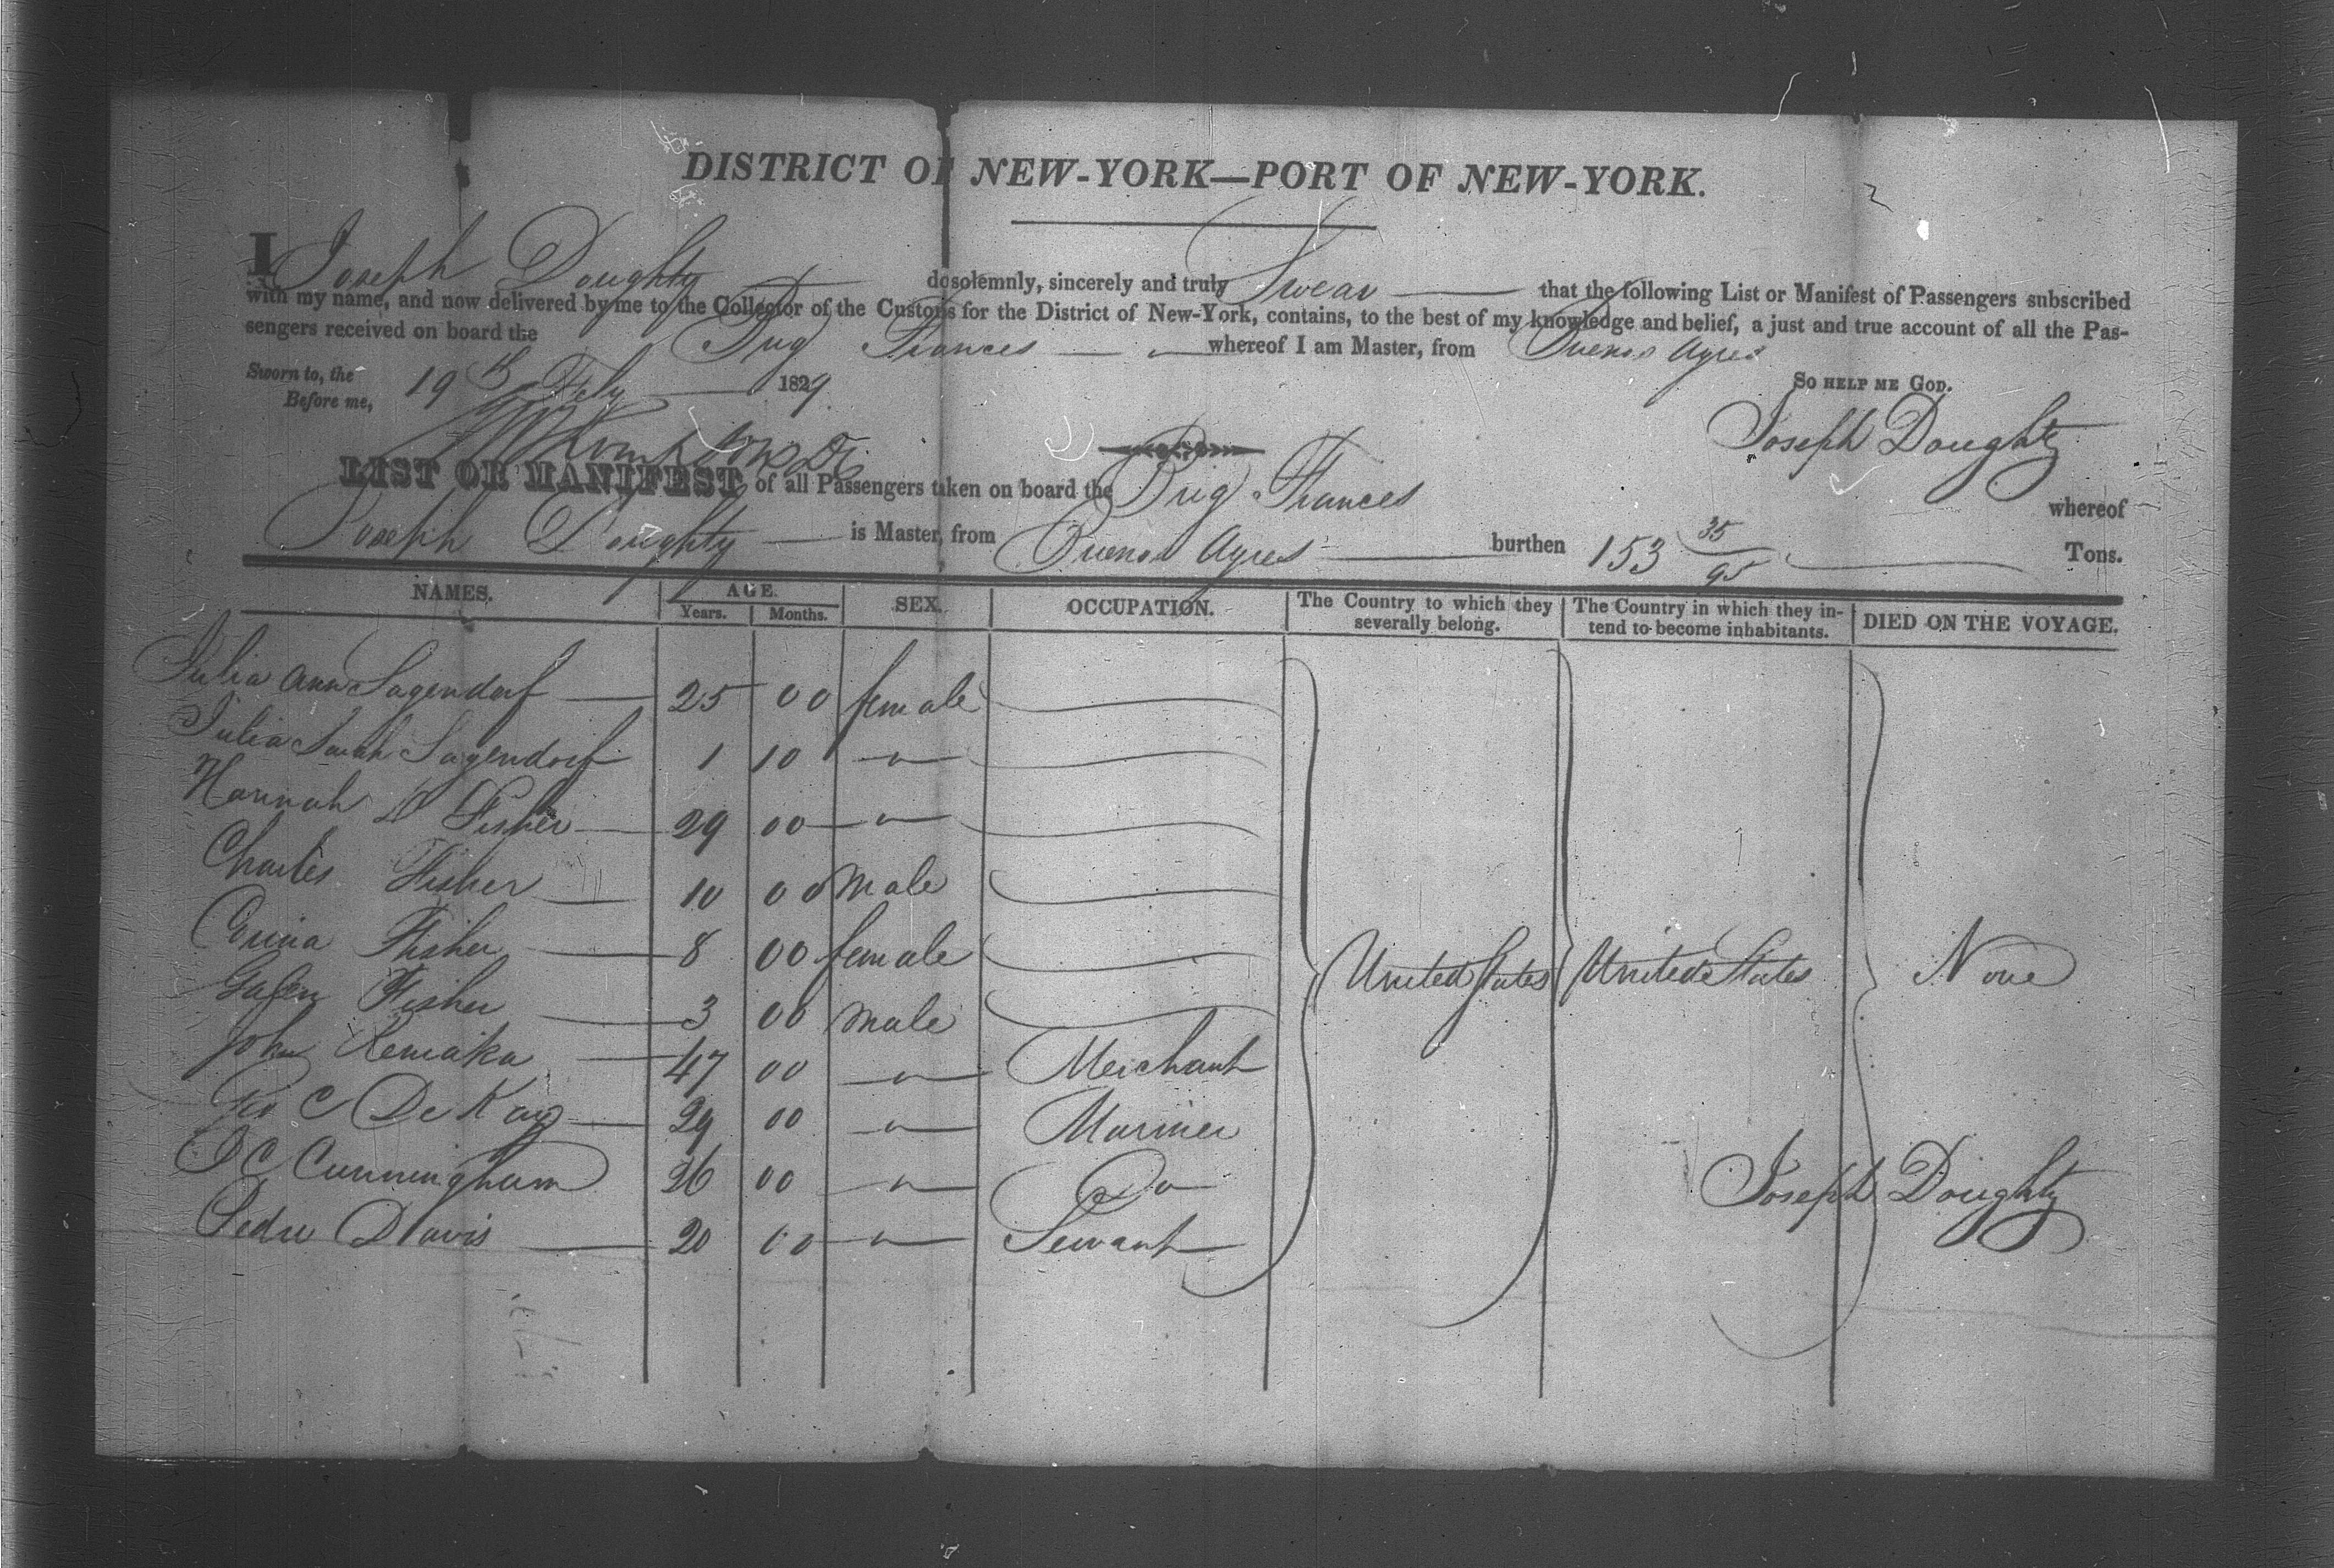 DISTRICT OF NEW-YORK—PORT OF NEW-YORK.
I Joseph Doughty do solemnly, sincerely and truly Swear that the following List or Manifest of Passengers subscribed
with my name, and now delivered by me to the Collector of the Customs for the District of New-York, contains, to the best of my knowledge and belief, a just and true account of all the Pas-
sengers received on board the Brig Frances whereof I am Master, from Buenos Ayres
Sworn to, the 19th Feby 1829
Before me,
SO HELP ME GOD.
Joseph Doughty
LIST OR MANIFEST of all Passengers taken on board the Brig Frances whereof
Joseph Doughty is Master, from Buenos Ayres burthen 153 35/95 Tons.
NAMES. AGE. Years. Months. SEX. OCCUPATION. The Country to which they severally belong. The Country in which they in-tend to become inhabitants. DIED ON THE VOYAGE.
Julia Ann Sagendorf 25 00 female
Julia Sarah Sagendorf 1 10 "
Hannah Fisher 29 00 "
Charles Fisher 10 00 Male
Fisher 8 00 female
Galen Fisher 3 00 male
John 47 00 " Merchant
Geo C DeKay 29 00 " Mariner
C Cunningham 26 00 " Do
Pedro Davis 20 00 " Servant
United States United States None
Joseph Doughty